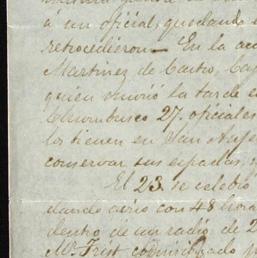 a un oficial, quedando
retrocedieron — En la acc
Martinez de Castro, Ca
quien murió la tarde
Churubusco 27. oficiales
los tienen en San Anje
conservar sus espadas,
El 23. se celebró
dando aviso con 48 hora
dentro de un radio de 2
Mr Trist comisionado p